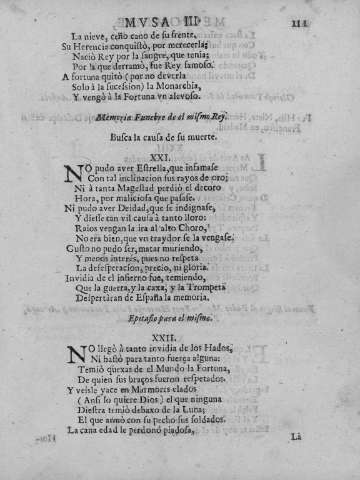 MVSA III. 111
La nieve, cesto cano de su frente,
Su Herencia conquistò, por merecerla;
Naciò Rey por la sangre, que tenia;
Por la que derramò, fue Rey famoso.
A fortuna quitò (por no deverla
Solo à la sucession) la Monarchia,
Y vengò à la Fortuna vn alevoso.
Memoria Funebre de el mismo Rey.
Busca la causa de su muerte.
XXI.
NO pudo aver Estrella, que infamase
Con tal inclinacion sus rayos de oro;
Ni à tanta Magestad perdiò el decoro
Hora, por maliciosa que pasase.
Ni pudo aver Deidad, que se indignase,
Y diesse tan vil causa à tanto lloro:
Raios vengan la ira al alto Choro,
No era bien, que vn traydor se la vengase.
Gusto no pudo ser, matar muriendo,
Y menos interès, pues no respeta
La desesperacion, precio, ni gloria.
Invidia de el infierno fue, temiendo,
Que la guerra, y la caxa, y la Trompeta
Despertàran de España la memoria.
Epitafio para el mismo.
XXII.
NO llegò à tanto invidia de los Hados,
Ni bastò para tanto fuerça alguna:
Temiò quexas de el Mundo la Fortuna,
De quien sus braços fueron respetados.
Y veisle yace en Marmoles elados
(Ansi lo quiere Dios) el que ninguna
Diestra temiò debaxo de la Luna;
El que armò con su pecho sus soldados.
La cana edad le perdonò piadosa,
La